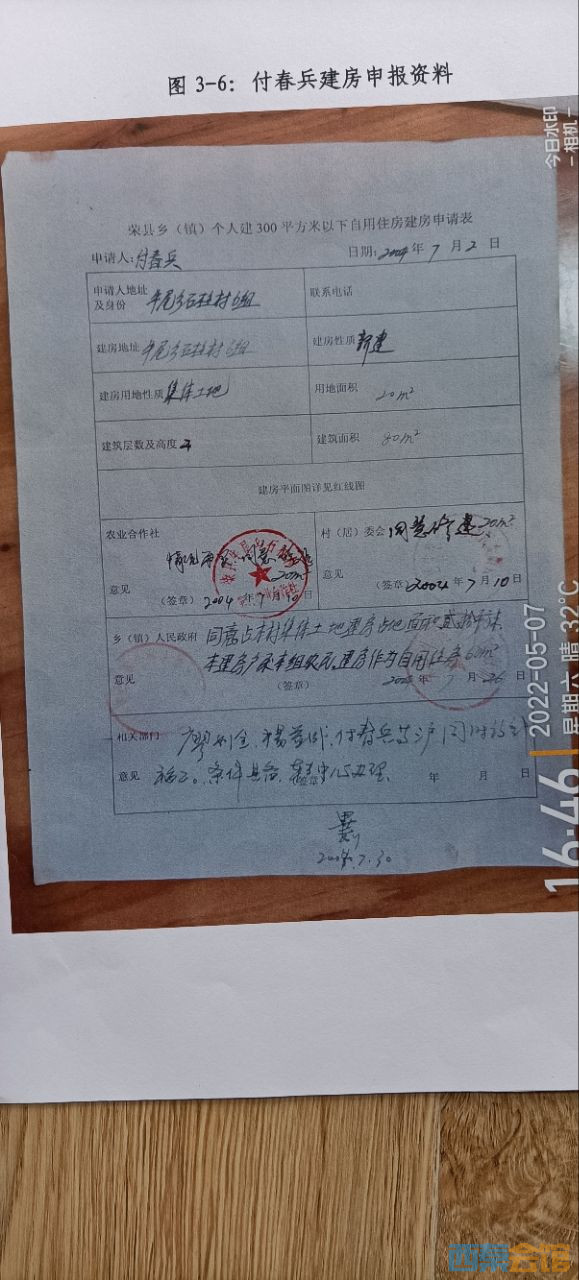 图 3-6：付春兵建房申报资料
今日水印
-相机-
荣县乡（镇）个人建300平方米以下自用住房建房申请表
申请人：付春兵 日期：2004年7月2日
申请人地址及身份 石柱村6组 联系电话
建房地址 石柱村6组 建房性质 新建
建房用地性质 集体土地 用地面积 20m²
建筑层数及高度 建筑面积 80m²
建房平面图详见红线图
农业合作社 村（居）委会 同意修建20m²
情况 同意
20m²
意见 意见
（签章）2004年7月10日 （签章）2004年7月10日
乡（镇）人民政府 同意占本村集体土地建房占地面积贰拾平米
本建房户系本组农民，建房作为自用住房
意见 （签章） 7月26日
相关部门 付春兵
意见 条件具备 办理 年 月 日
2004.7.30
2022-05-07
星期六 晴 32℃
16:46
西秦会馆